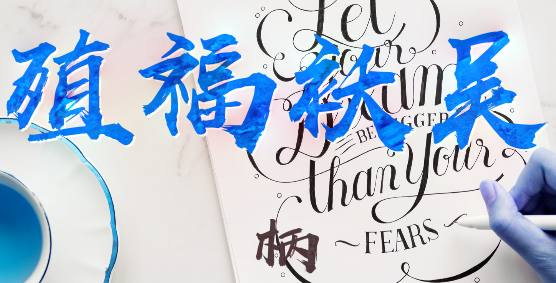 殖福袄吴
Let
your
Dream
BE BIGGER
than Your
~FEARS~
柄